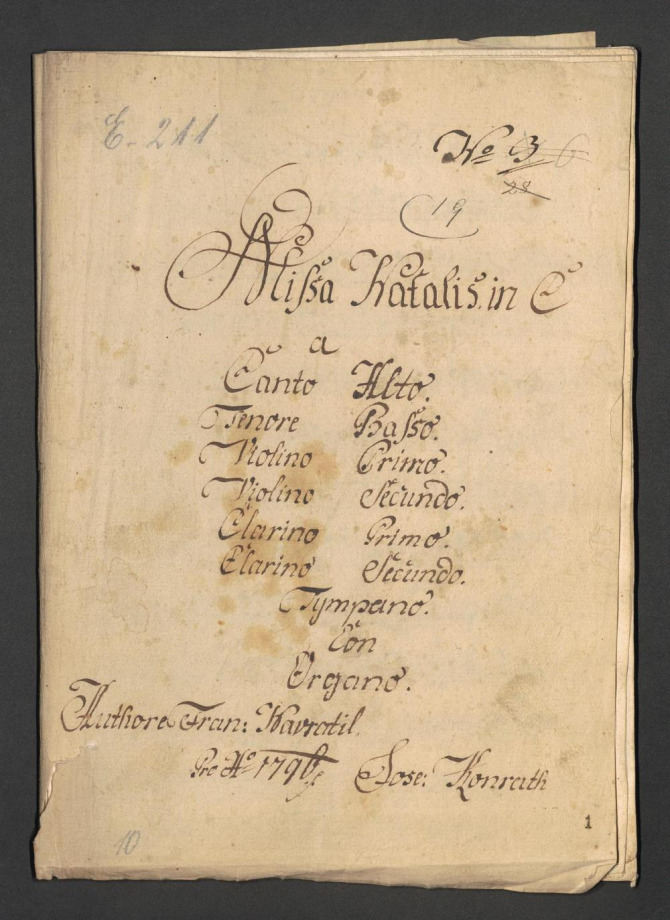 E. 211
No 3 6
28
19
Missa Natalis. in C
a
Canto Alto.
Tenore Basso.
Violino Primo.
Violino Secundo.
Clarino Primo.
Clarino Secundo.
Tympano.
Con
Organo.
Authore Fran: Navratil.
Pro Ao
Jose: Konrath
1
10